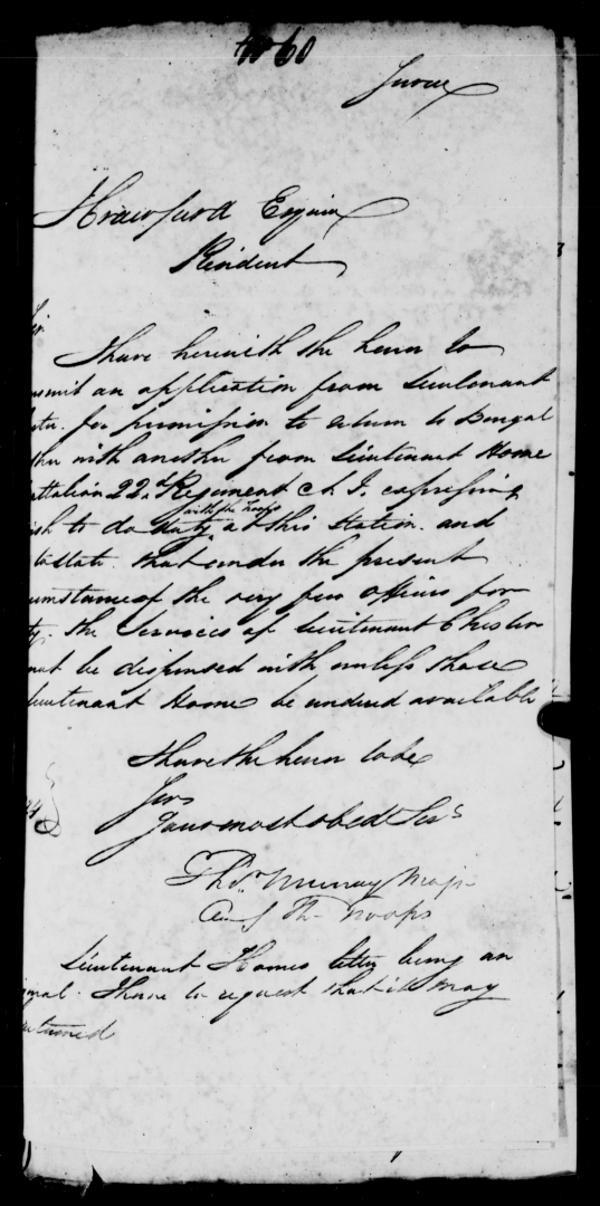 No 60
Crawfurd Esquire
Resident
Sir
I have herewith the honor to
nsmit an application from Lieutenant
for permission to return to Bengal
ther with another from Lieutenant Home
attalion 22d Regiment N. I. expressing
with the troops
ish to do duty at this Station. and
to state that under the present
cumstance of the very few officers for
ty. the Services of Lieutenant Chester
not be dispensed with unless those
Lieutenant Home be rendered available
I have the honor to be
Sir
Your most obedt Ser
24
Thos Murray Majr
Troops
Lieutenant Homes letter being an
ginal. I have to request that it may
returned